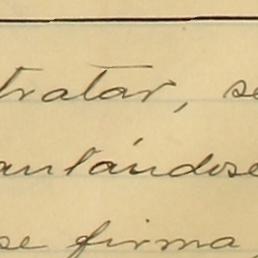 tratar, se
anlándose
se firma,